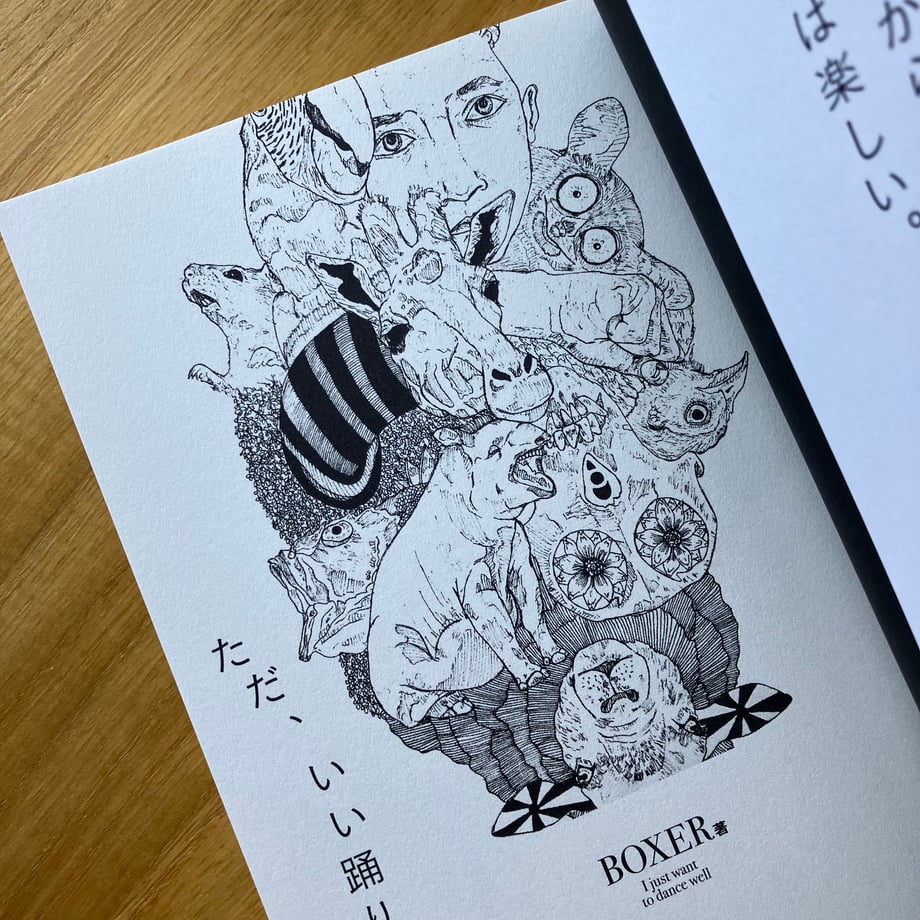 ただ、いい踊り
BOXER著
I just want
to dance well
は楽しい。